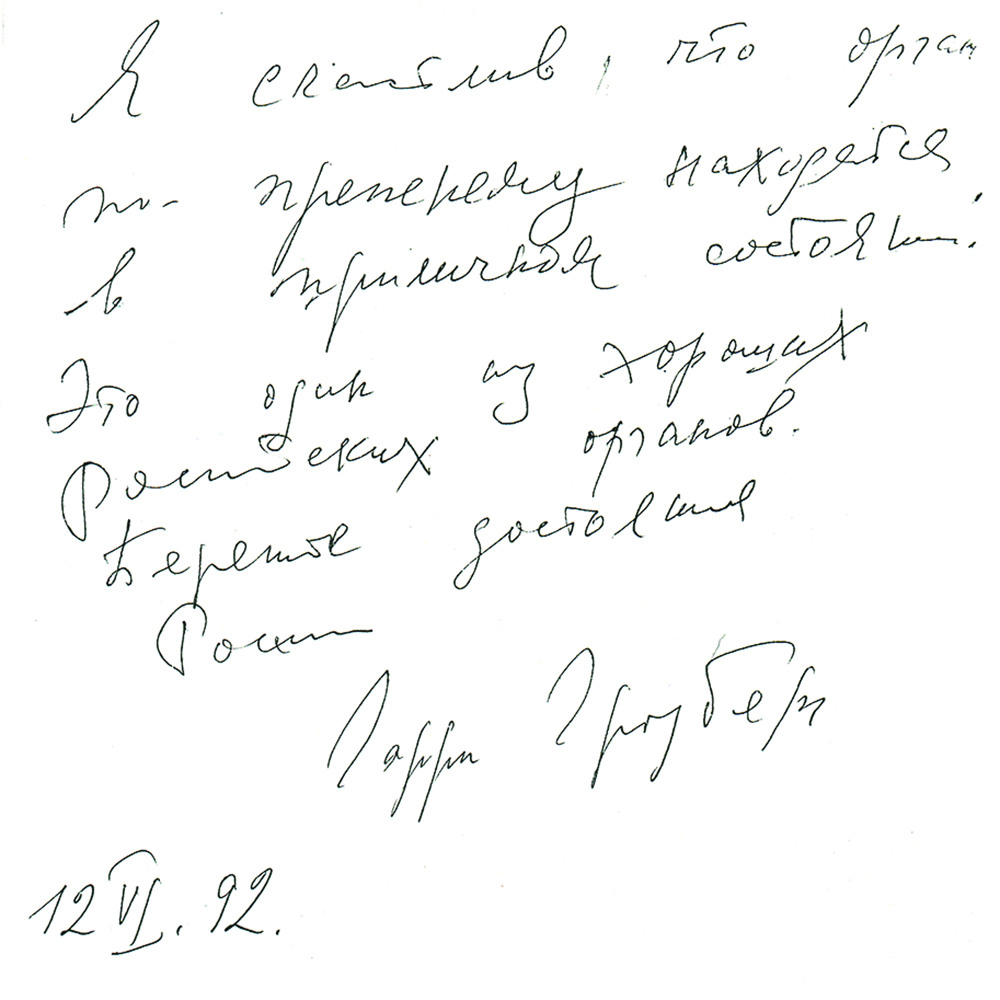 Я счастлив, что орган
по-прежнему находится
в приличном состоянии.
Это один из хороших
Российских органов.
Берегите достояние
России
Гарри Гродберг
12 VI. 92.